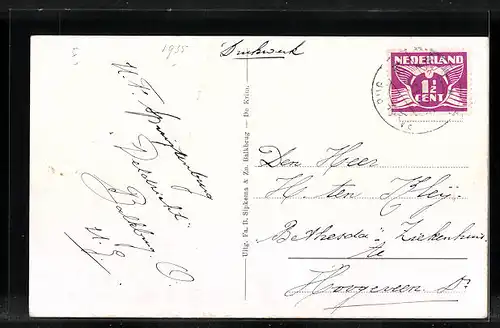 1935
Drukwerk
NEDERLAND
1½
CENT
Uitg. Fa. R. Sipkema & Zn. Balkbrug — De Krim.
Den Heer
H. ten Kleij
"Bethesda" Ziekenhuis
te
Hoogeveen Dr
Balkbrug O.